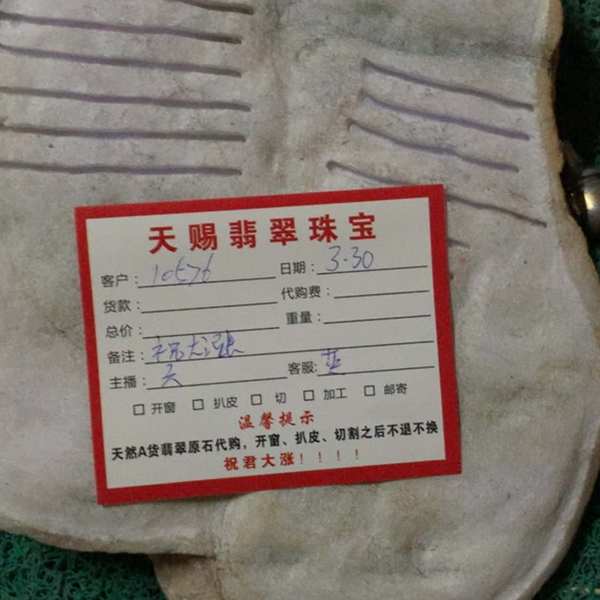 天赐翡翠珠宝
客户: 10576 日期: 3.30
货款: 代购费:
总价: 重量:
备注: 大涨
主播: 客服:
□ 开窗 □ 扒皮 □ 切 □ 加工 □ 邮寄
温馨提示
天然A货翡翠原石代购，开窗、扒皮、切割之后不退不换
祝君大涨！！！！